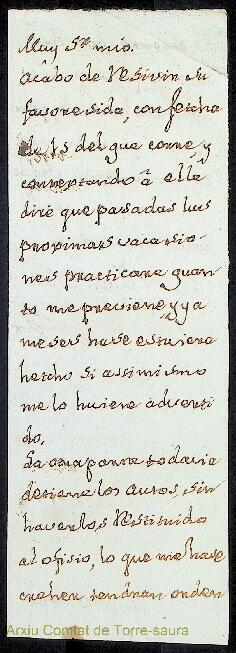 Muy Sr. mio.
Acabo de Resivir su
favoresida, con fetcha
de 15 del que corre, y
conteptando â ella
diré que pasadas las
propimas vacasio
nes practicare quan
to me previene, y ya
meses hase estuviera
hetcho si assimismo
me lo huviere adverti
do.
La oma parre todavia
detiene los autos, sin
haverlos Restituido
al ofisio, lo que me hase
creher tendran orden
Arxiu Comtat de Torre-saura